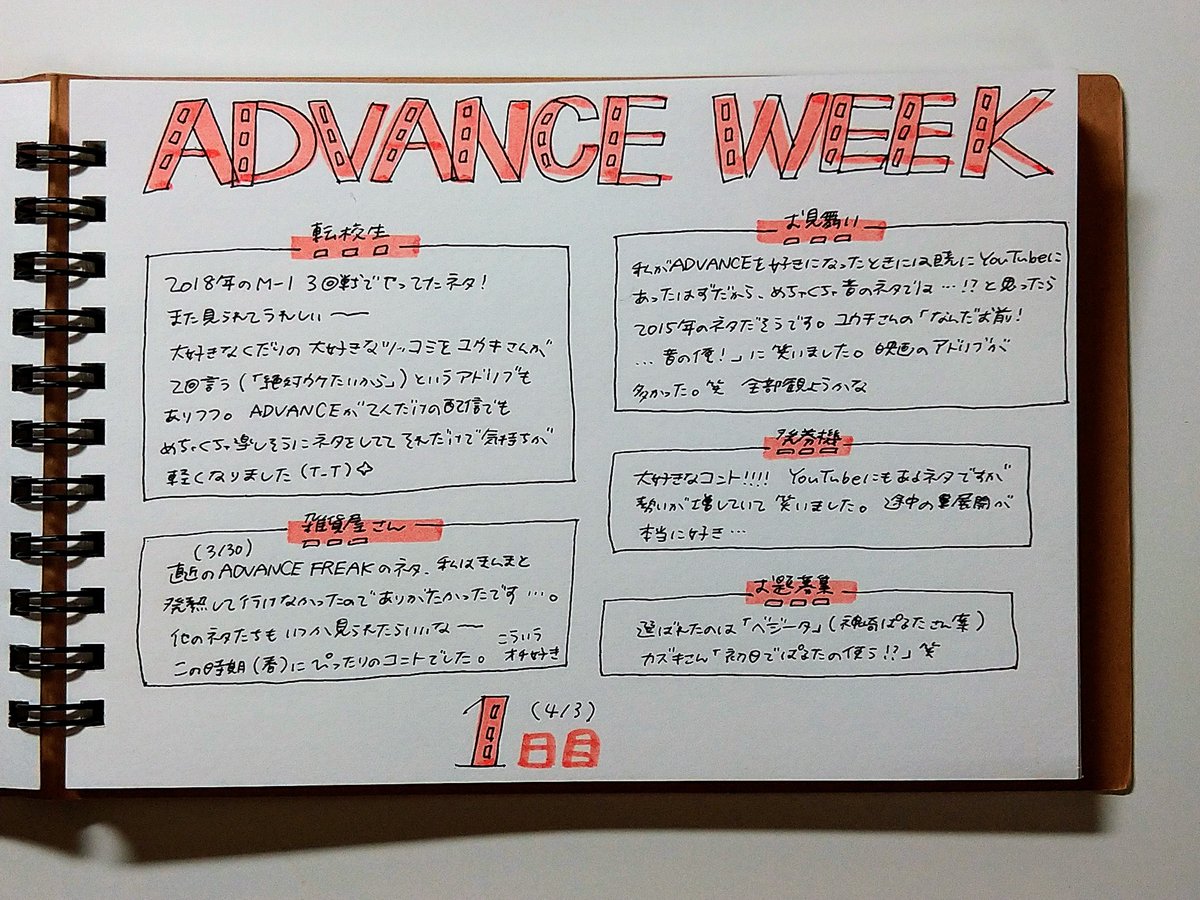 ADVANCE WEEK
転校生
2018年のM-1 3回戦でやってたネタ!
また見られてうれしい〜
大好きなくだりの大好きなツッコミをユウキさんが
2回言う(「絶対ウケたいから」)というアドリブも
ありつつ。ADVANCEが2人だけの配信でも
めちゃくちゃ楽しそうにネタをしてて それだけで気持ちが
軽くなりました(T-T)✧
雑貨屋さん
(3/30)
直近のADVANCE FREAKのネタ、私はきんまと
発熱して行けなかったのでありがたかったです…。
他のネタたちもいつか見られたらいいな〜
この時期(春)にぴったりのコントでした。 こういう
オチ好き
お見舞い
私がADVANCEを好きになったときには既にYouTubeに
あったはずだから、めちゃくちゃ昔のネタでは…!?と思ったら
2015年のネタだそうです。ユウキさんの「なんだお前!
…昔の俺!」に笑いました。映画のアドリブが
多かった。笑 全部観ようかな
発券機
大好きなコント!!!! YouTubeにもあるネタですが
勢いが増していて笑いました。途中の裏展開が
本当に好き…
お題募集
選ばれたのは「ベジータ」(神崎ぱるたさん案)
カズキさん「初日でぱるたの使う!?」笑
1日目
(4/3)